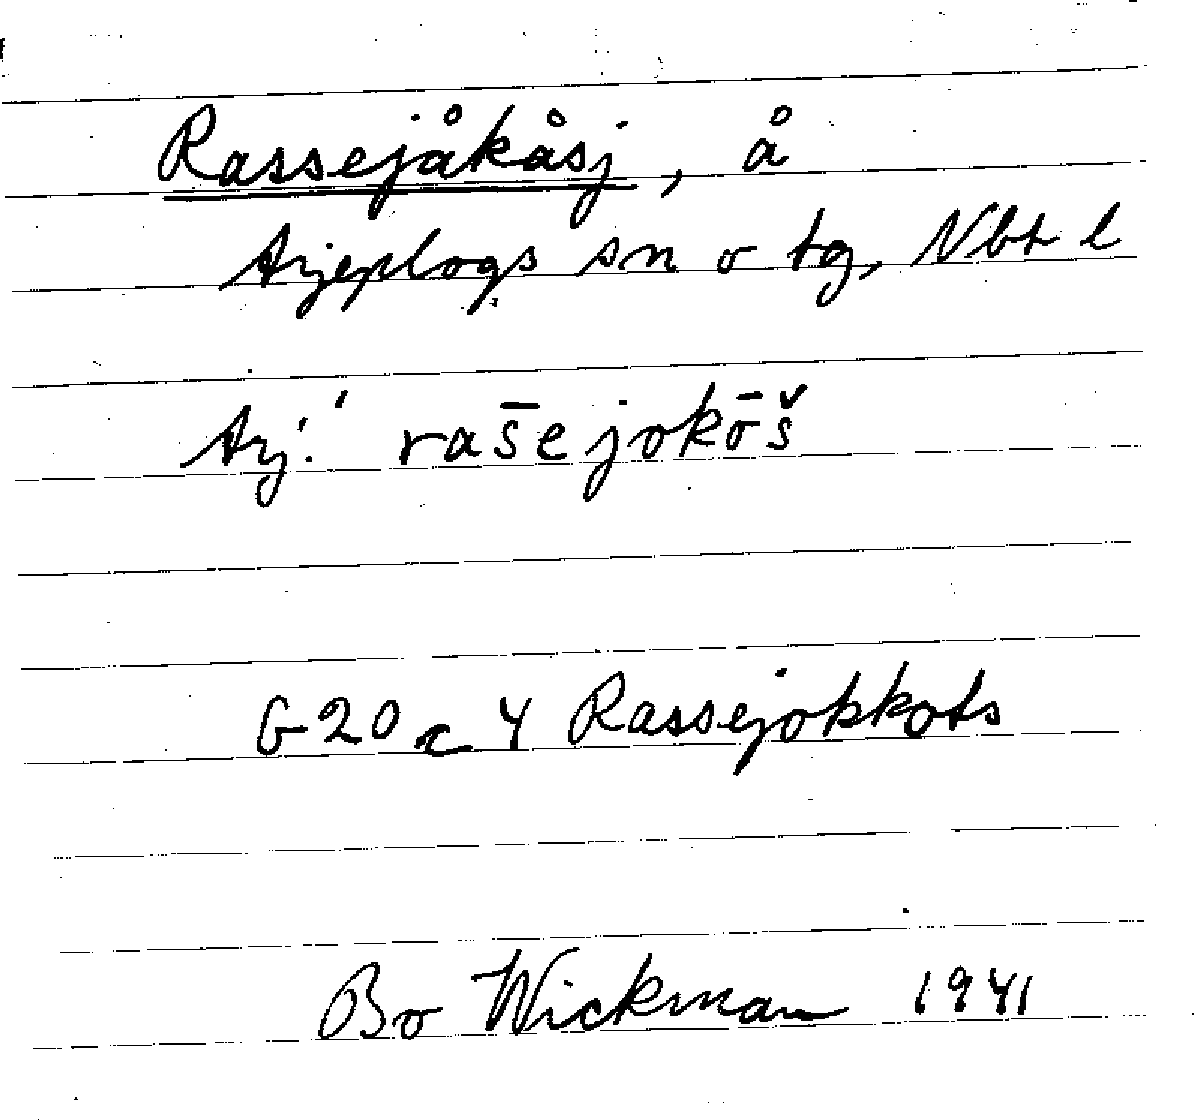 Rassejåkåsj, å
Arjeplogs sn o tg, Nbt l
Arj.' ras̄ejokō̆š
G20c4 Rassejokkots
Bo Wickman 1941